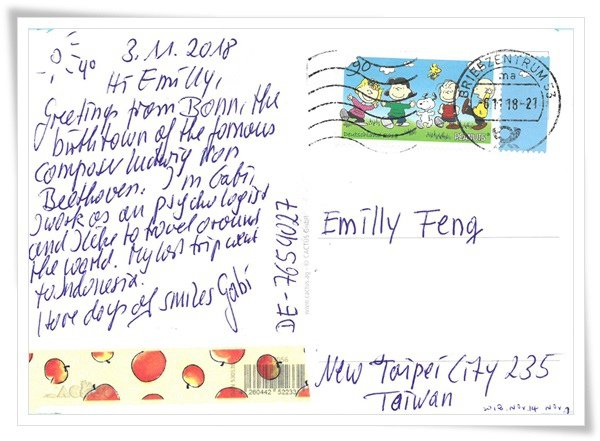 3.11.2018
4°
Hi Emilly,
Greetings from Bonn, the
birthtown of the famous
composer Ludwig van
Beethoven. I'm Gabi,
I work as an psychologist
and I like to travel around
the world. My last trip went
to Indonesia.
Have days of smiles Gabi
DE-7659027
90
Deutschland
Peanuts
BRIEFZENTRUM 53
ma
18-21
Emilly Feng
New Taipei City 235
Taiwan